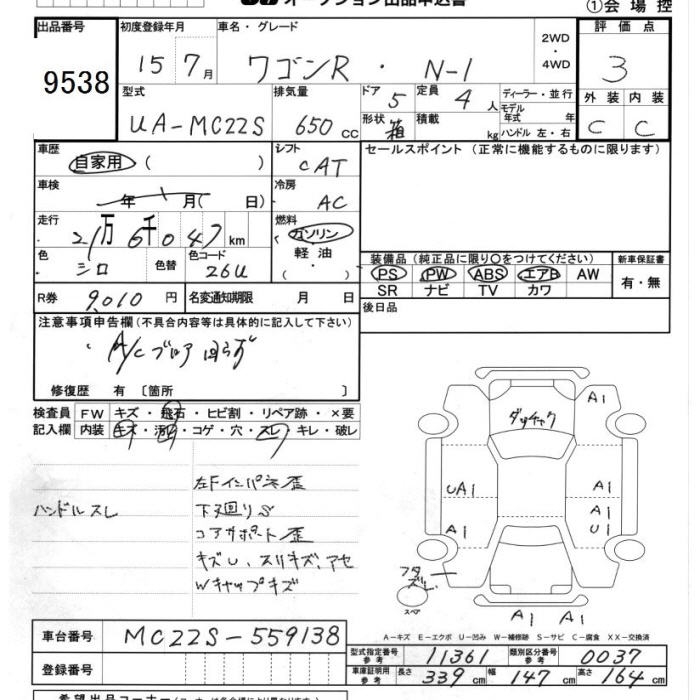 オークション出品申込書
①会 場 控
出品番号 初度登録年月 車名・グレード 2WD・4WD 評 価 点
9538 15 7月 ワゴンR ・ N-1 3
型式 排気量 ドア 5 定員 4人 ディーラー・並行 外 装 内 装
UA-MC22S 650cc 形状 箱 積載 kg モデル年式 年 C C
ハンドル 左・右
車歴 自家用 ( ) シフト CAT セールスポイント (正常に機能するものに限ります)
車検 年 月( 日) 冷房 AC
走行 21万6千047km 燃料 ガソリン
軽 油
( ・ )
色 シロ 色替 色コード 26U
装備品 (純正品に限り〇をつけてください) 新車保証書
PS PW ABS エアB AW 有・無
SR ナビ TV カワ
R券 9,010円 名変通知期限 月 日 後日品
注意事項申告欄(不具合内容等は具体的に記入して下さい)
A/Cブロア回らず
修復歴 有 〔箇所 〕
検査員 FW キズ・飛石・ヒビ割・リペア跡・×要
記入欄 内装 キズ・汚れ・コゲ・穴・スレ・キレ・破レ
ハンドルスレ
左Fインパネ歪
下廻りS
コアサポート歪
キズU、スリキズ、アセ
Wキャップキズ
ダッチャク
A1
UA1 A1
A1 A1
U1
フタズレ
スペア
A1 A1
A-キズ E-エクボ U-凹み W-補修跡 S-サビ C-腐食 XX-交換済
車台番号 MC22S-559138
型式指定番号 参考 11361 類別区分番号 参考 0037
登録番号 車庫証明用 参考 長さ 339cm 幅 147cm 高さ 164cm
希望出品コーナー(スターキー対象外となります)